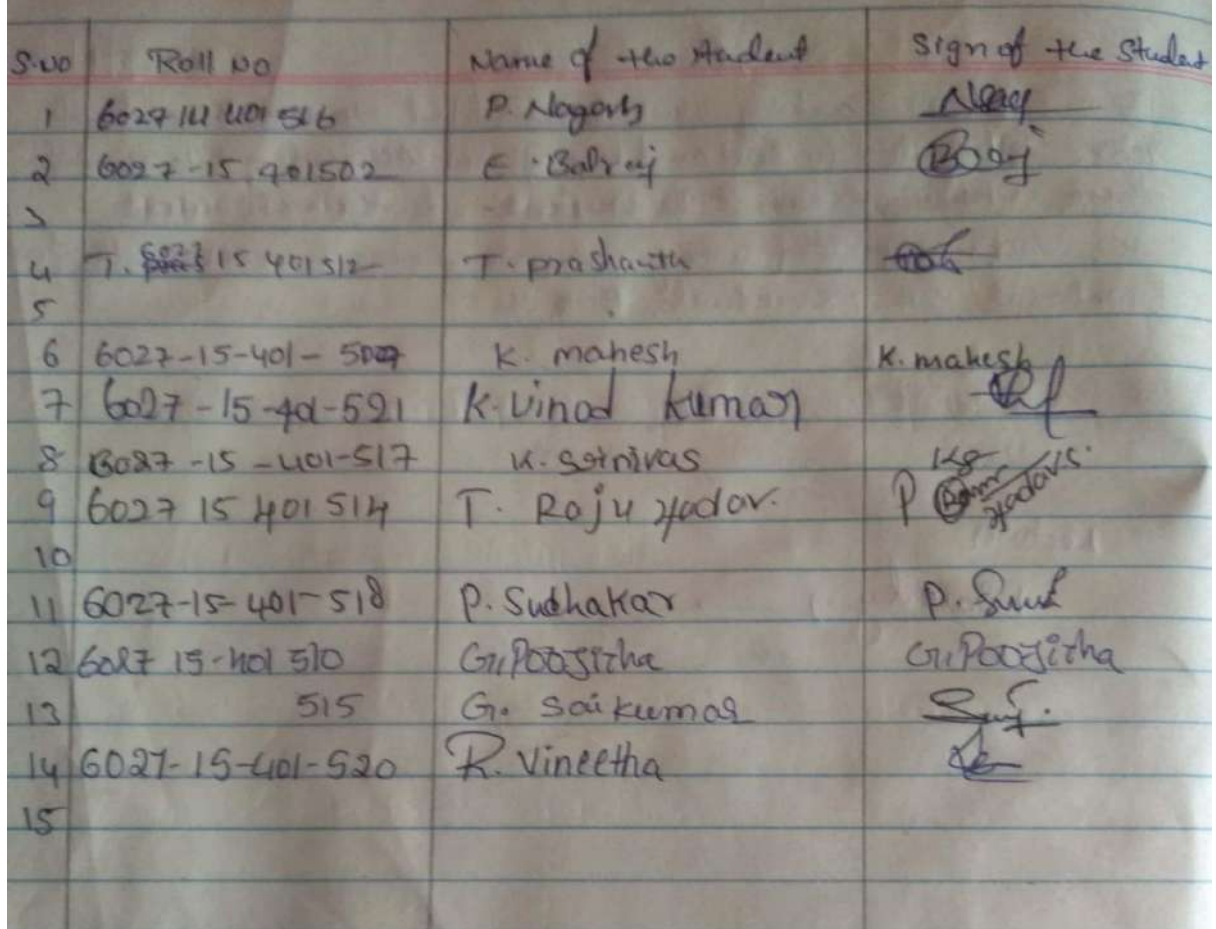 S.no Roll no Name of the student Sign of the Student
1 6027 14 401 516 P. Nagesh
2 6027-15 401502 E. Balraj
3
4 T. 6027 15 401512 T. prashanth
5
6 6027-15-401- 507 K. mahesh K. mahesh
7 6027-15-401-521 K. Vinod kumar
8 6027-15-401-517 K. Srinivas KS
9 6027 15 401 514 T. Raju yadav. P yadav.s.
10
11 6027-15-401-518 P. Sudhakar P.
12 6027 15-401 510 G. Poojitha G. Poojitha
13 515 G. Saikumar
14 6027-15-401-520 R. Vineetha
15